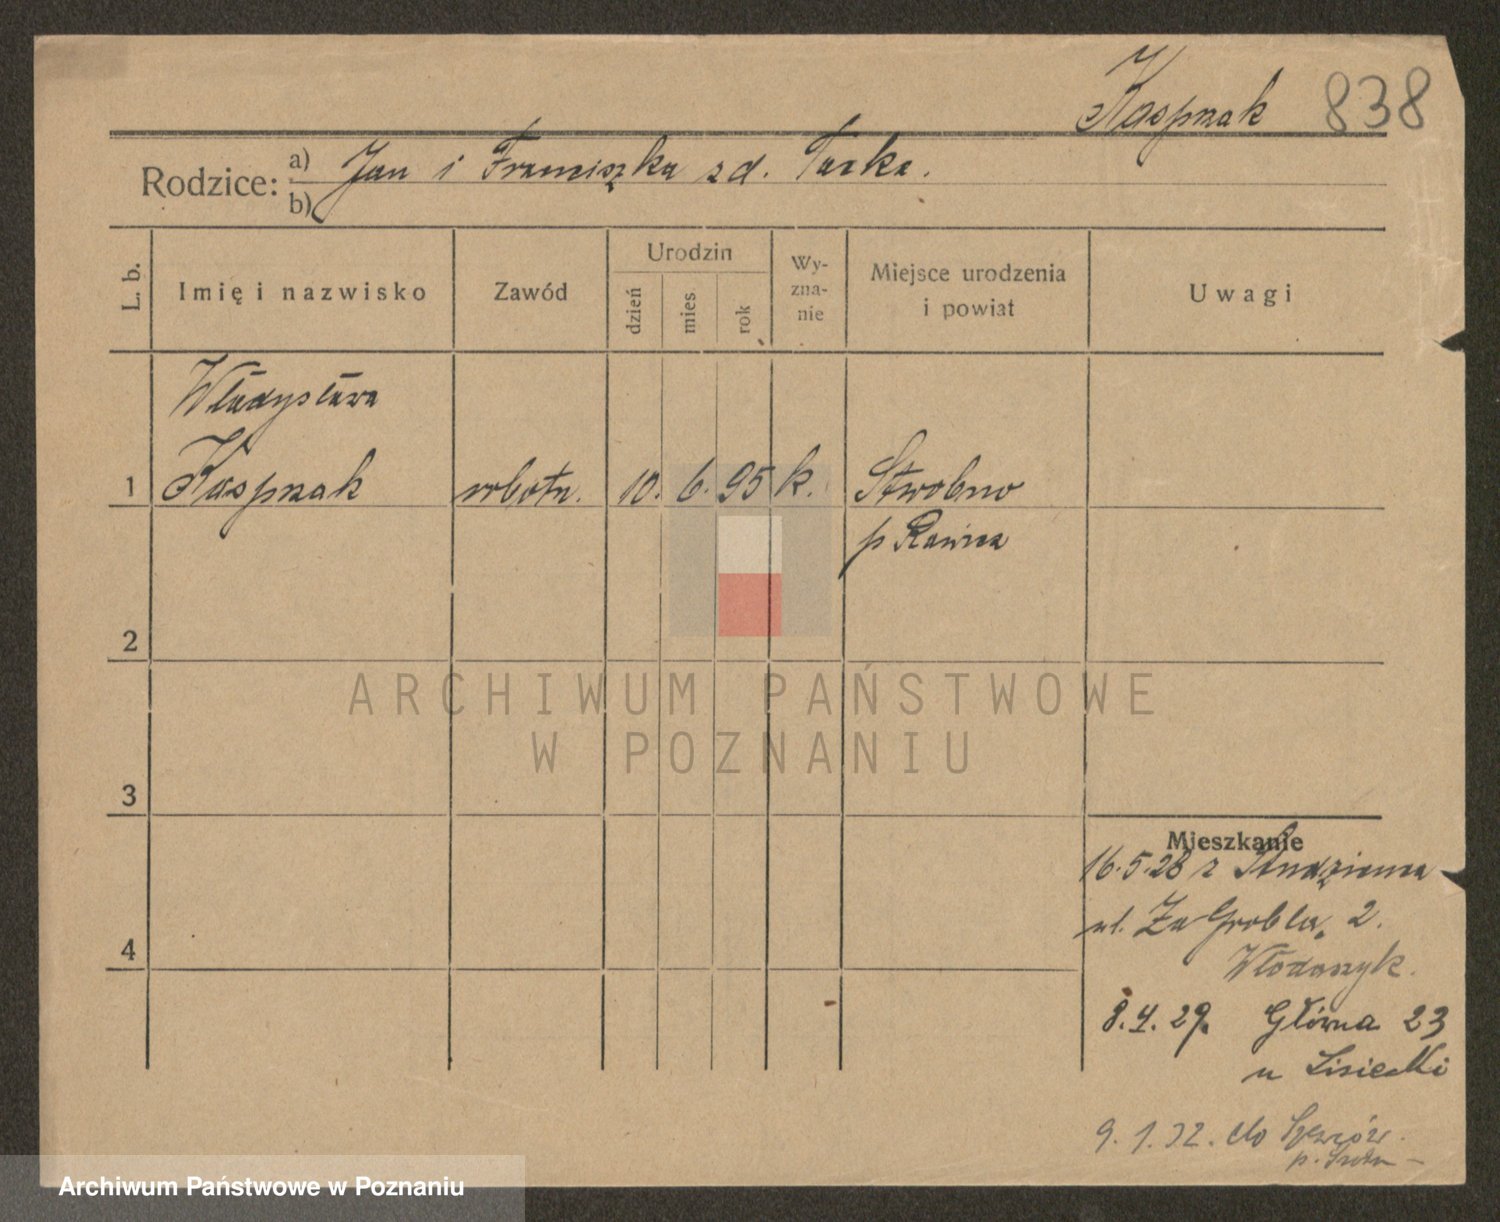 Kasprzak 838
Rodzice: a) Jan i Franciszka zd.
b)
L. b.
Imię i nazwisko
Zawód
Urodzin
dzień
mies.
rok
Wy-
zna-
nie
Miejsce urodzenia
i powiat
Uwagi
Władysława
1 Kasprzak robotn. 10. 6. 95 k.
p Rawicz
2
ARCHIWUM PAŃSTWOWE
W POZNANIU
3
Mieszkanie
16.5.28 z
4
ul. Za Groblą 2.
Włodarczyk.
8.4.29. Główna 23
u Lisiecki
9.1.32. do
Archiwum Państwowe w Poznaniu